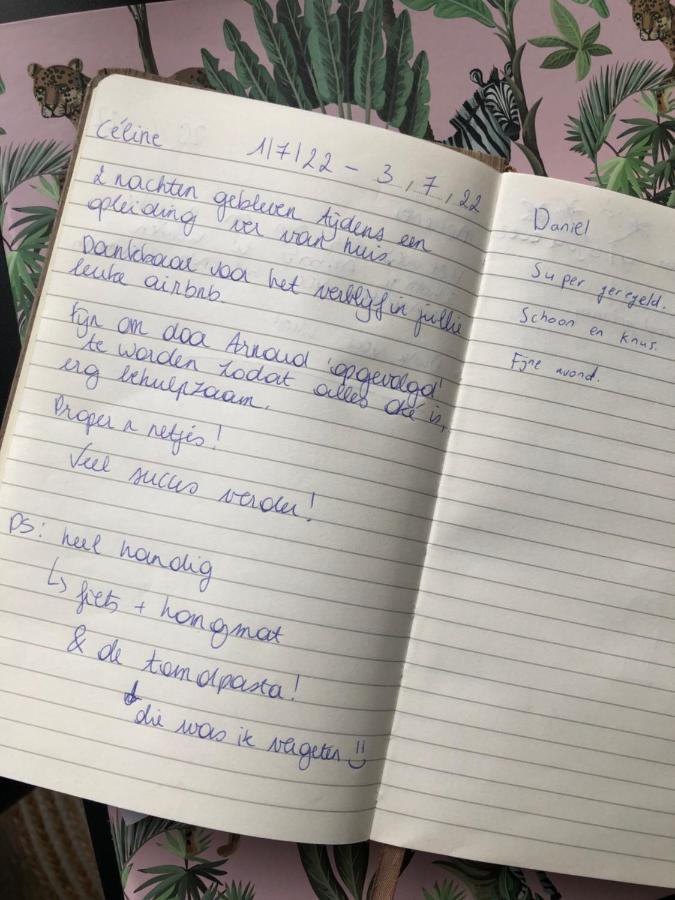 Céline
1/7/22 - 3,7,22
2 nachten gebleven tijdens een
opleiding ver van huis.
Dankbaar voor het verblijf in jullie
leuke airbnb
Fijn om door Arnoud 'opgevolgd'
te worden zodat alles oké is,
erg behulpzaam.
Proper n netjes!
Veel succes verder!
PS: heel handig
↳ fiets + hangmat
& de tandpasta!
↓ die was ik vergeten :)
Daniel
Super geregeld.
Schoon en knus.
Fijne avond.